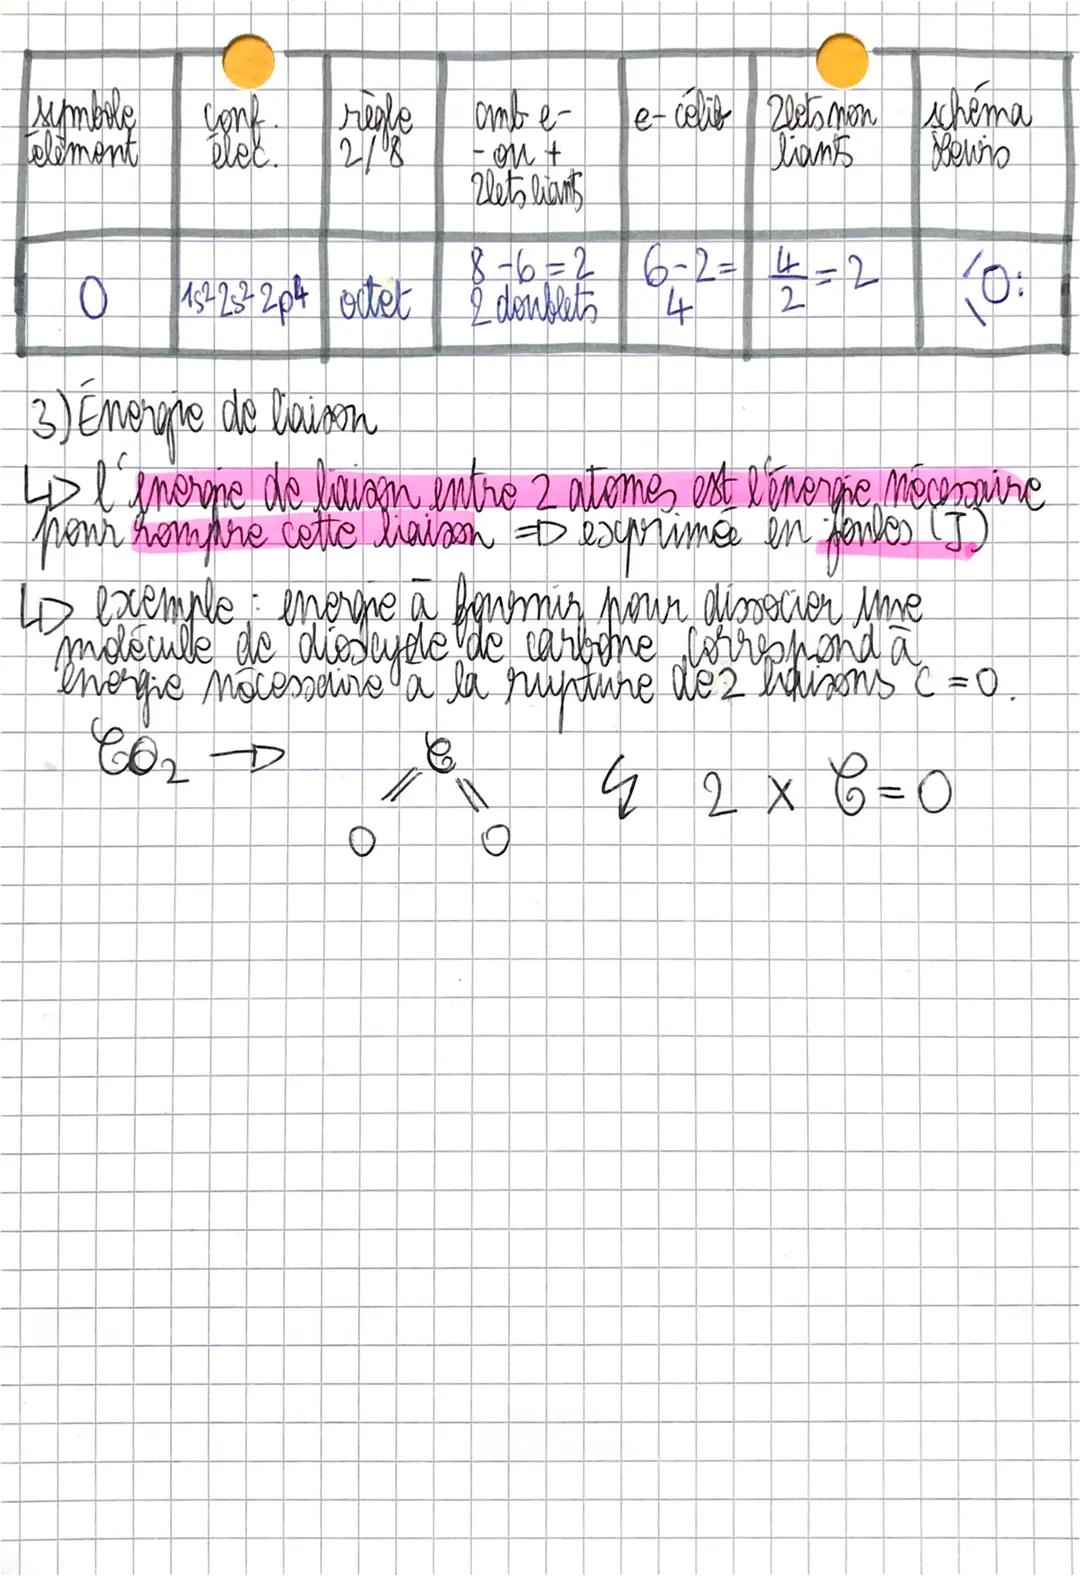 symbole élément
conf. élec.
règle 2/8
cmb e- - ou + 2lets liants
e- célib
2lets non liants
schéma Lewis
O
1s² 2s² 2p⁴
octet
8-6=2 2 doublets
6-2= 4
4/2 = 2
O:
3) Énergie de liaison
↳ l'énergie de liaison entre 2 atomes est l'énergie nécessaire
pour rompre cette liaison => exprimée en joules (J)
↳ exemple : énergie à fournir pour dissocier une
molécule de dioxyde de carbone correspond à
énergie nécessaire à la rupture de 2 liaisons C=O.
CO₂ → C 2 x C=O
O O